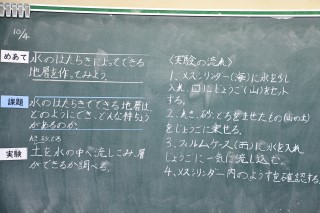 10/4
めあて
水のはたらきによってできる
地層を作ってみよう。
課題
水のはたらきでできる地層は、
どのようにでき、どんな特ちょう
があるのか。
実験
れき、砂、どろ
土を水の中へ流しこみ、層
ができるか調べる。
〈実験の流れ〉
1、メスシリンダー(海)に水を少し
入れ、口にじょうご(山)をセット
する。
2、れき、砂、どろを混ぜたもの(山の土)
をじょうごに乗せる。
3、フィルムケース(雨)に水を入れ、
じょうごに一気に流し込む。
4、メスシリンダー内のようすを確認する。